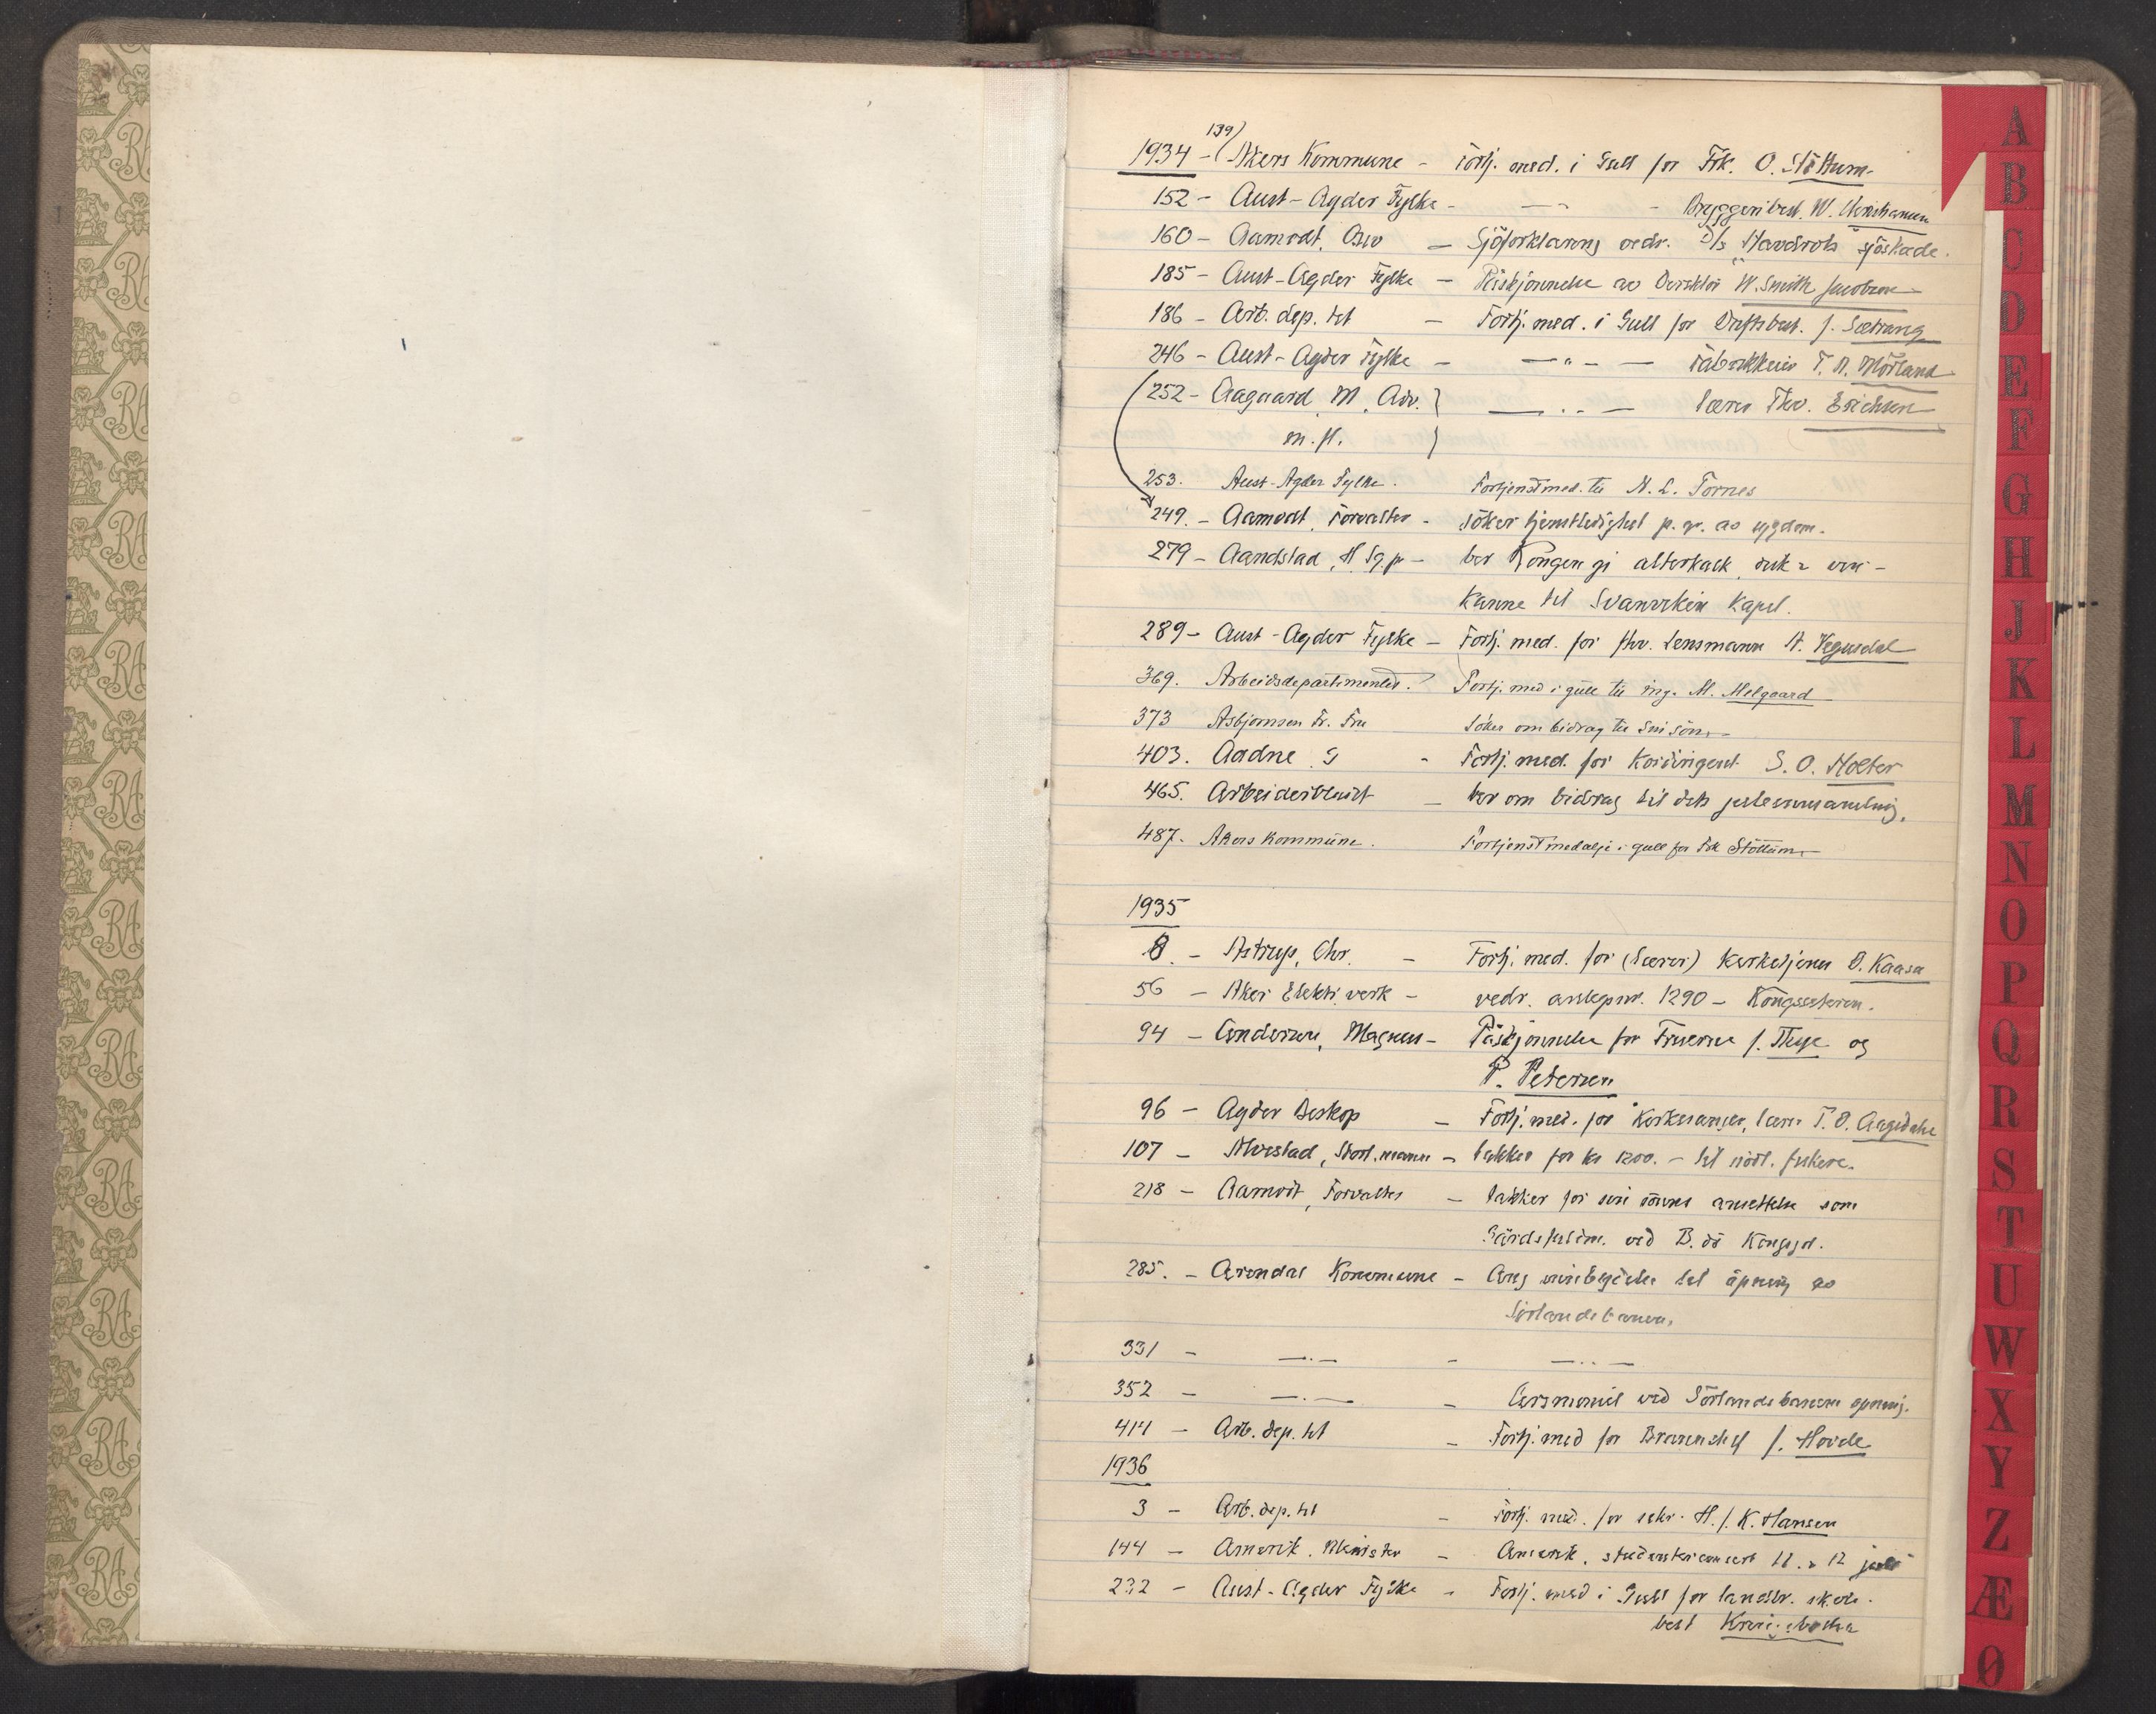 139)
1934 - ( Akers Kommune - Fortj. med. i Gull for Frk. O. Støttum
152 - Aust-Agder Fylke - —"— - Bryggeribest. W. Christiansen
160 - Aamodt, - Sjøforklaring vedr. D/s "Havdrots" sjøskade.
185 - Aust-Agder Fylke - Påskjønnelse av Direktør W. Smith Jacobsen
186 - Arb. dep. tet - Fortj. med. i Gull for Driftsbest. J. Sætrang
246 - Aust-Agder Fylke - —"— - Fabrikkeier T. A. Mørland
252 - Aagaard, M. Adv. } —"— Lærer Thv. Erichsen
m. fl. }
253. Aust-Agder Fylke. Fortjenstmed. til N. L. Tornes
249. - Aamodt, Forvalter - søker tjenstledighet p. gr. av sygdom.
279 - Aandstad, H. Sg.pr - ber Kongen gi alterkalk, disk & vin-
kanne til Svanviken Kapel.
289 - Aust-Agder Fylke - Fortj. med. for fhv. Lensmann A. Vegusdal
369. Arbeidsdepartementet. Fortj. med i gull til ing. M. Melgaard
373 Asbjørnsen Fr. Fru Søker om bidrag til sin sønn
403. Aadne G - Fortj. med. for Kordirigent S. O. Holter
465. Arbeiderbladet - ber om bidrag til dets juleinnsamling.
487. Akers Kommune. Fortjenstmedalje i gull for Frk Støttum
1935
8. - Astrup, Chr. - Fortj. med. for (Lærer) Kirketjener O. Kaasa
56 - Aker Elektr. verk - vedr. anlegnr. 1290 - Kongsseteren.
94 - Andersen, Magnus - Påskjønnelse for Fruerne J. Thye og
P. Petersen
96 - Agder Biskop - Fortj. med. for Kirkesanger, Lærer T. O. Aagedahl
107 - Alvestad, Stort.mann - takker for kr 1200. - til nødl. fiskere.
218 - Aamodt, Forvalter - takker for sin sønns ansettelse som
Gårdsfuldm. ved B. dø Kongsgd.
285. - Arendal Kommune - Ang innbydelse til åpning av
Sørlandsbanen.
331 - —"— - —"—
352 - —"— - Ceremoniel ved Sørlandsbanens åpning.
414 - Arb. dep. tet - Fortj. med for Brannchef J. Hovde
1936
3 - Arb. dep. tet - Fortj. med. for sekr. H. J. K. Hansen
144 - Amerik. Minister - Amerik. studentkonsert 11. & 12 juli
232 - Aust-Agder Fylke - Fortj. med i Gull for landbr. skole-
best
A
B
C
D
E
F
G
H
J
K
L
M
N
O
P
Q
R
S
T
U
W
X
Y
Z
Æ
Ø